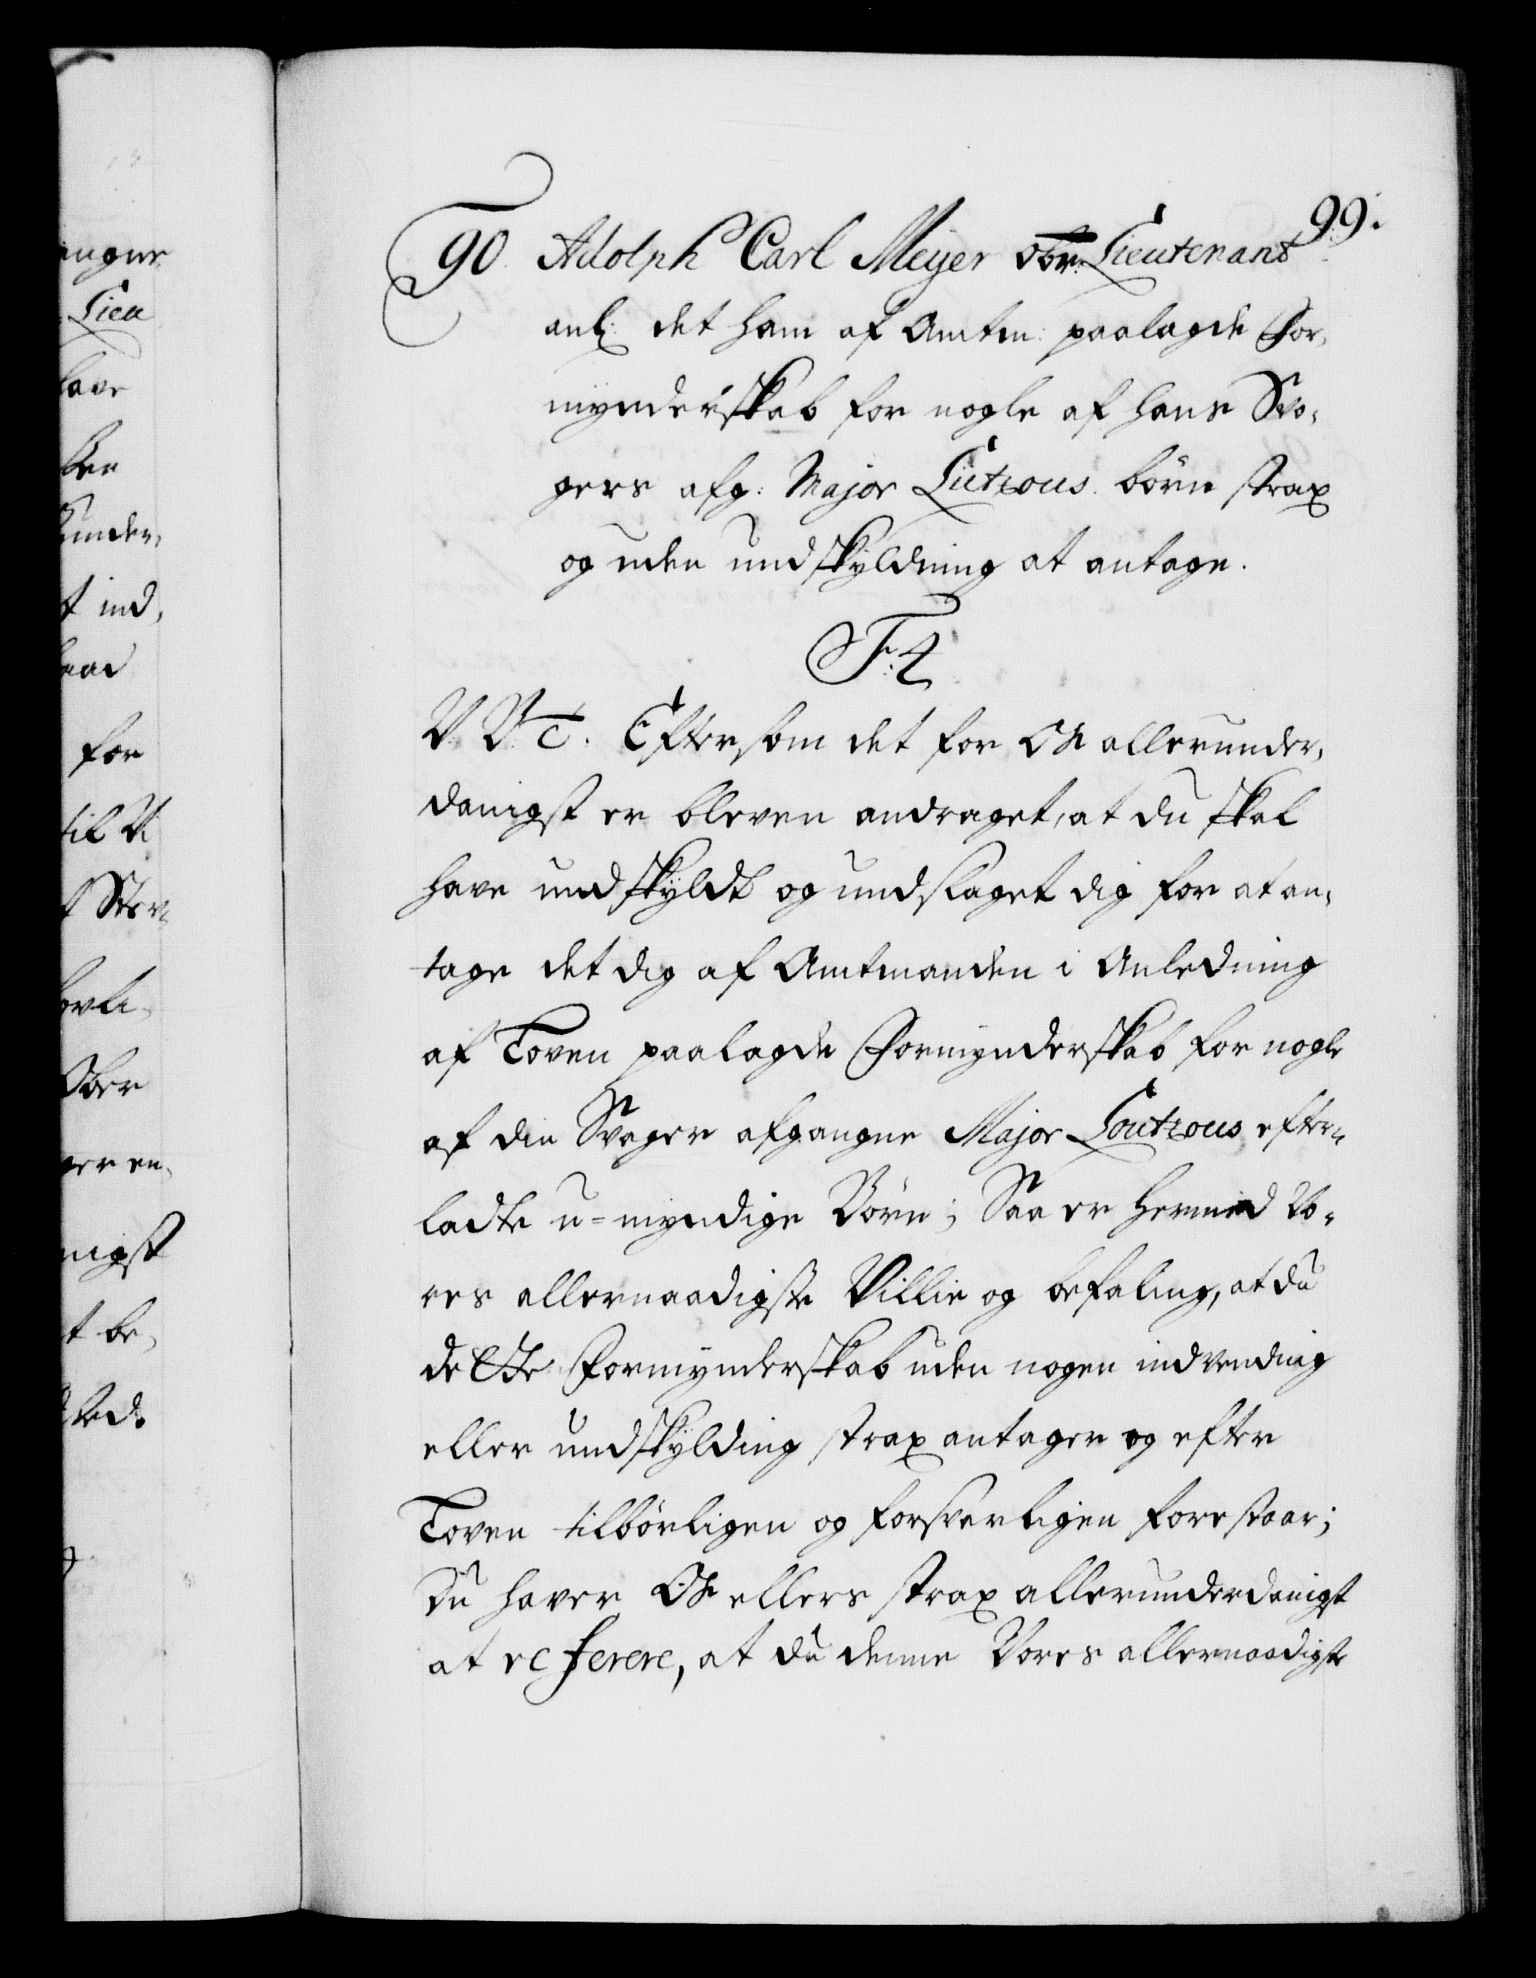 99.
90. Adolph Carl Meyer Obr: Lieutenant
anl: det ham af Amtm: paalagde For,
mynderskab for nogle af hans Svo,
gers afg: Major Lützous börn strax
og uden undskyldning at antage.
F: 4
V. V. T. Eftersom det for Os allerunder,
danigst er bleven andraget, at du skal
have undskyldt og undslaget dig for at an,
tage det dig af Amtmanden i Anledning
af Loven paalagde Formynderskab for nogle
af din Svoger afgangne Major Loutzous efter,
ladte u=myndige Börn; Saa er hermed Vo,
res allernaadigste Villie og befaling, at du
dette Formynderskab uden nogen indvending
eller undskylding strax antager og efter
Loven tilbörligen og forsvarligen forestaar;
Du haver Os ellers strax allerunderdanigst
at referere, at du denne Vores allernaadigste
angne
Lieu
lave
ben
under,
t ind,
aad
for
til Vi
Ober
ger en,
nigst
t be,